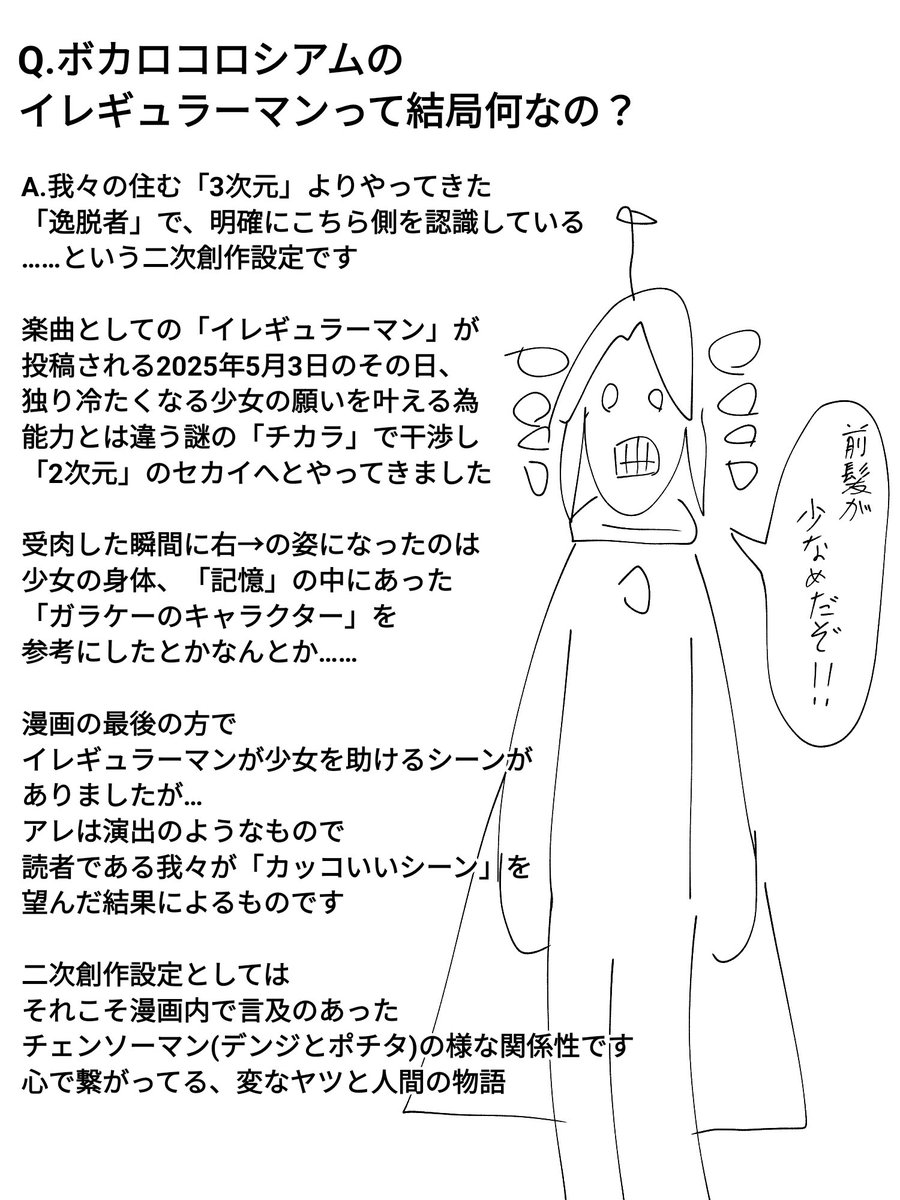 Q.ボカロコロシアムの
イレギュラーマンって結局何なの？
A.我々の住む「3次元」よりやってきた
「逸脱者」で、明確にこちら側を認識している
……という二次創作設定です
楽曲としての「イレギュラーマン」が
投稿される2025年5月3日のその日、
独り冷たくなる少女の願いを叶える為
能力とは違う謎の「チカラ」で干渉し
「2次元」のセカイへとやってきました
受肉した瞬間に右→の姿になったのは
少女の身体、「記憶」の中にあった
「ガラケーのキャラクター」を
参考にしたとかなんとか……
漫画の最後の方で
イレギュラーマンが少女を助けるシーンが
ありましたが…
アレは演出のようなもので
読者である我々が「カッコいいシーン」を
望んだ結果によるものです
二次創作設定としては
それこそ漫画内で言及のあった
チェンソーマン(デンジとポチタ)の様な関係性です
心で繋がってる、変なヤツと人間の物語
前髪が
少なめだぞ!!